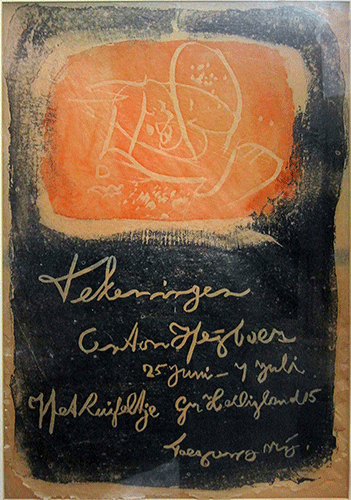 Tekeningen
Anton Heijboer
25 Juni - 7 Juli
Het Ruifeltje Gr Heiligland 15
toegang vrij.